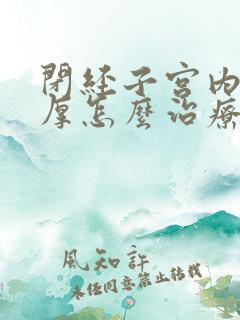 閉經子宮內
厚怎麼治療
風知許
未经同意禁止转载